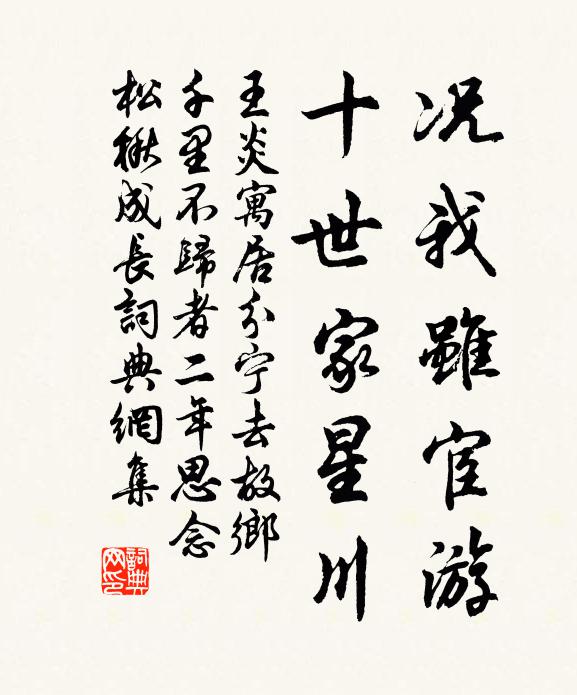 况我雖宦游
十世家星川
王炎寓居分宁去故鄉
千里不歸者二年思念
松楸成長詞典網集
詞典网印